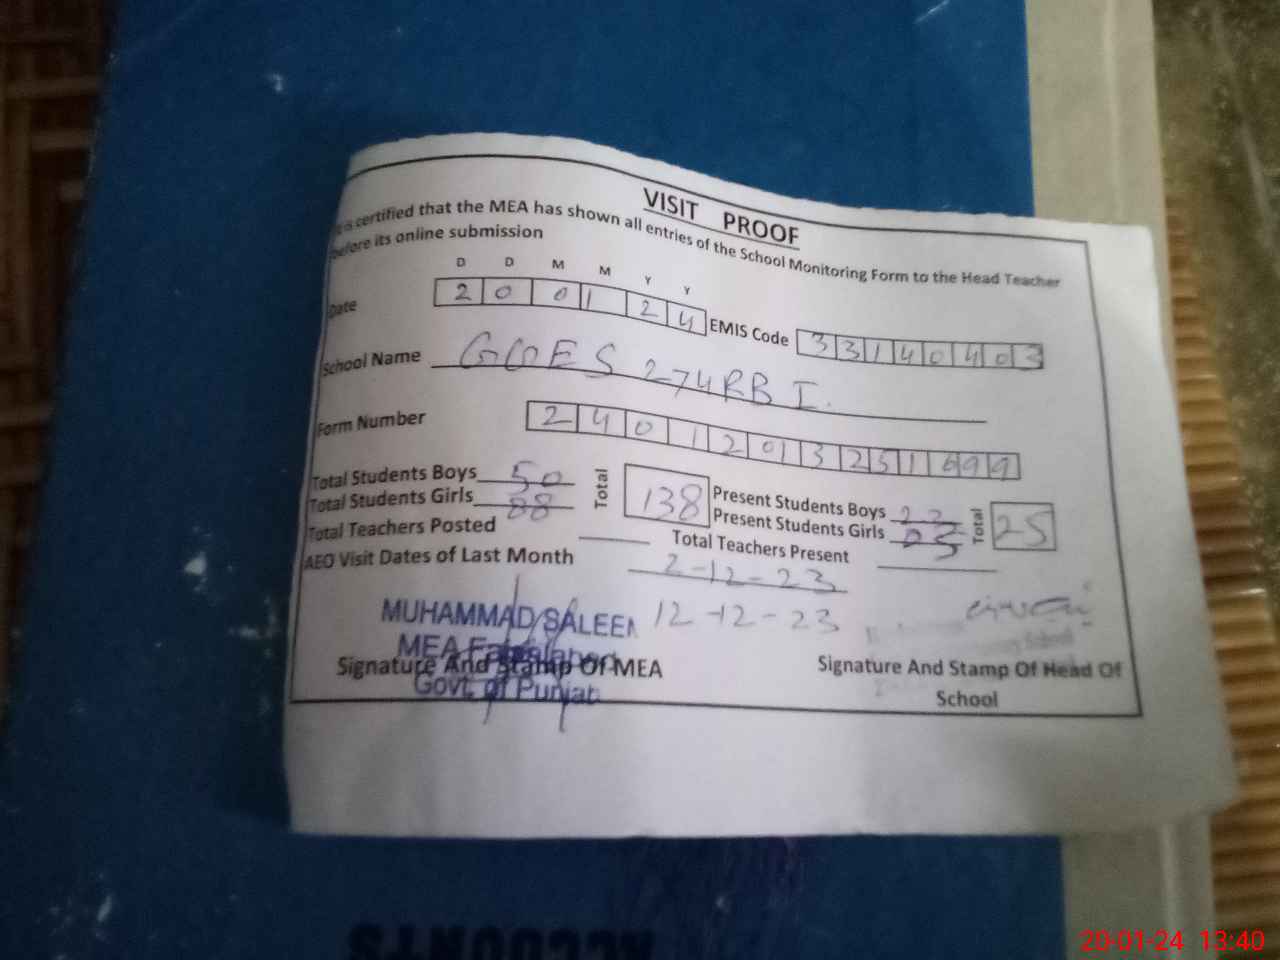 VISIT PROOF
It is certified that the MEA has shown all entries of the School Monitoring Form to the Head Teacher
before its online submission
D D M M Y Y
Date 2 0 0 1 2 4 EMIS Code 3 3 1 4 0 4 0 3
School Name 274 RB I.
Form Number 2 4 0 1 2 0 1 3 2 5 1 6 9 9
Total Students Boys 50 Total 138 Present Students Boys Total 25
Total Students Girls 88 Present Students Girls
Total Teachers Posted Total Teachers Present
AEO Visit Dates of Last Month 2-12-23
12-12-23
MUHAMMAD SALEEM
MEA Faisalabad
Govt. of Punjab
Signature And Stamp Of MEA Signature And Stamp Of Head Of
School
ACCOUNTS
20-01-24 13:40